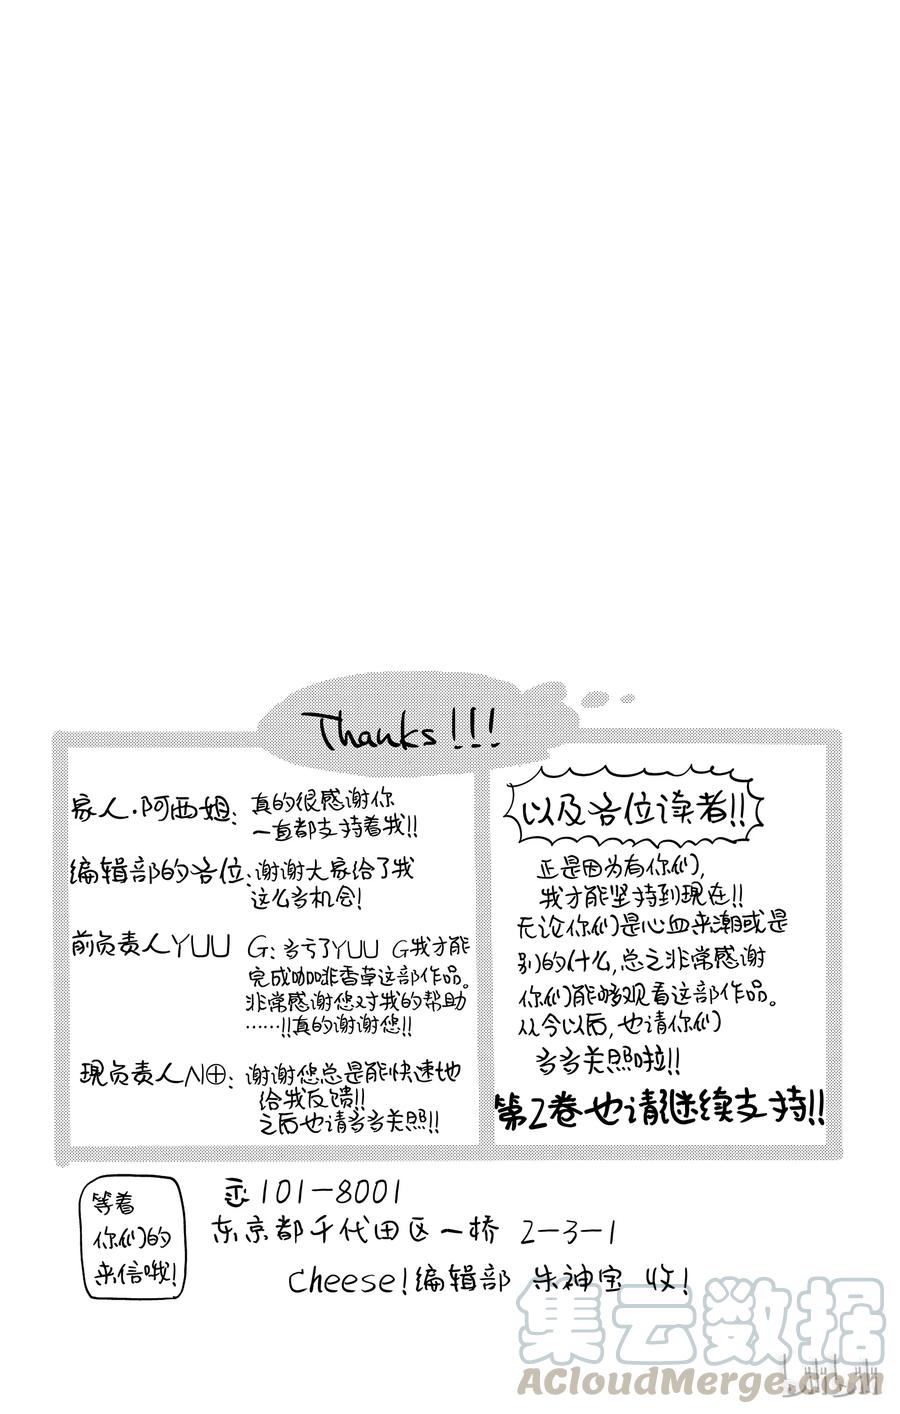 Thanks!!!
家人·阿西姐：真的很感谢你
一直都支持着我!!
编辑部的各位：谢谢大家给了我
这么多机会!
前负责人YUU G：多亏了YUU G我才能
完成咖啡香草这部作品。
非常感谢您对我的帮助
……!!真的谢谢您!!
现负责人N⊕：谢谢您总是能快速地
给我反馈!!
之后也请多多关照!!
以及各位读者!!
正是因为有你们,
我才能坚持到现在!!
无论你们是心血来潮或是
别的什么,总之非常感谢
你们能够观看这部作品。
从今以后,也请你们
多多关照啦!!
第2卷也请继续支持!!
等着
你们的
来信哦!
101-8001
东京都千代田区一桥 2-3-1
Cheese!编辑部 朱神宝 收!
集云数据
ACloudMerge.com